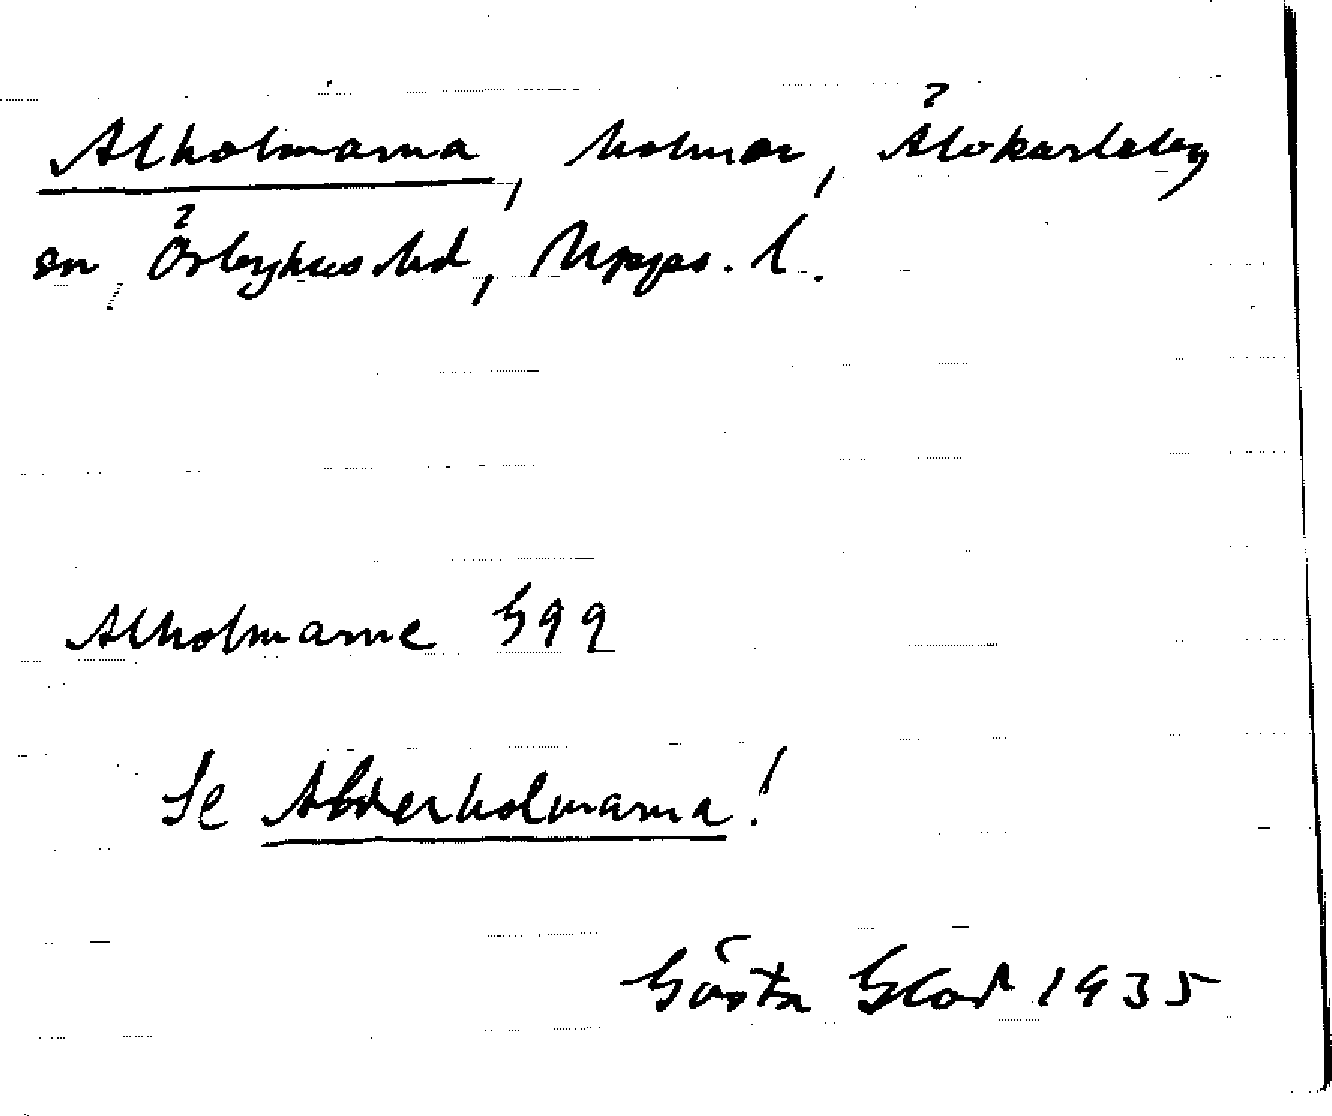 Alholmarna, holmar, Älvkarleby
sn, Örbyhus hd, Upps. l.
Alholmarne G 99
Se Alderholmarna!
Gösta Glad 1935